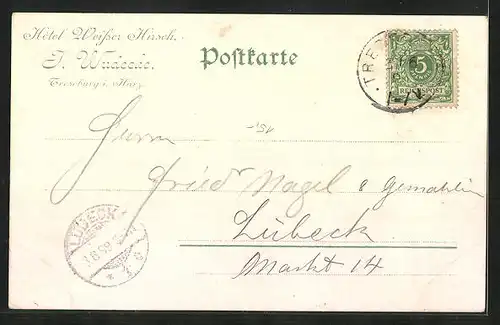 Hôtel Weißer Hirsch.
Treseburg i. Harz.
Postkarte
5
REICHSPOST
Herrn
Fried Nagel & Gemahlin
Lübeck
Markt 14
LÜBECK